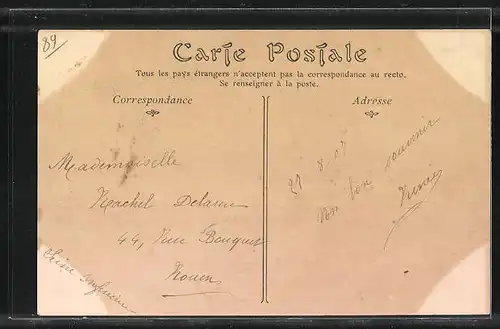 89
Carte Postale
Tous les pays étrangers n'acceptent pas la correspondance au recto.
Se renseigner à la poste.
Correspondance
Adresse
Mademoiselle
Rachel
44, Rue Bouquet
Rouen
Seine Inférieure
21 8 07
Mon bon souvenir